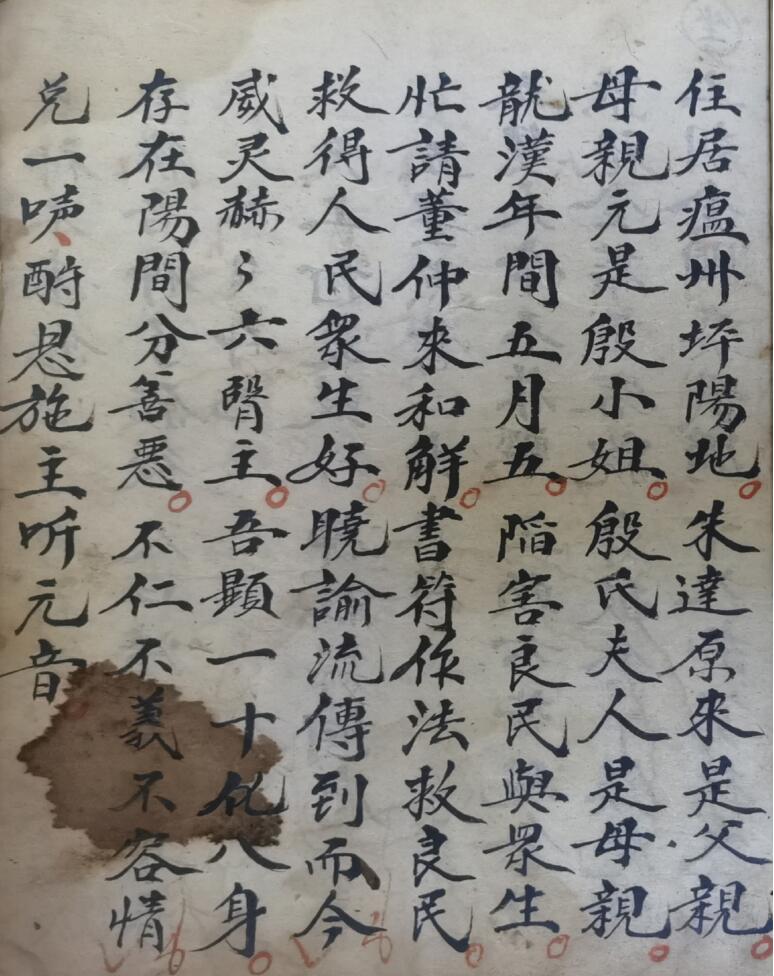 住居瘟州坪陽地朱達原來是父親
母親元是殷小姐殷氏夫人是母親
龍漢年間五月五陷害良民與眾生
忙請董仲來和解書符作法救良民
救得人民眾生好曉諭流傳到而今
威灵赫〻六臂主吾顯一十化八身
存在陽間分善惡不仁不義不容情
兑一唤酧恩施主听元音